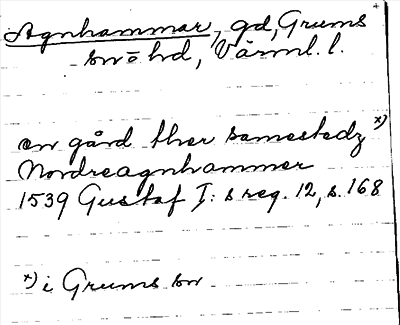 Agnhammar, gd, Grums
sn o hd, Värml. l.
en gård ther samestedz x)
Nordreagnhammer
1539 Gustaf I:s reg. 12, s. 168
x) i Grums sn